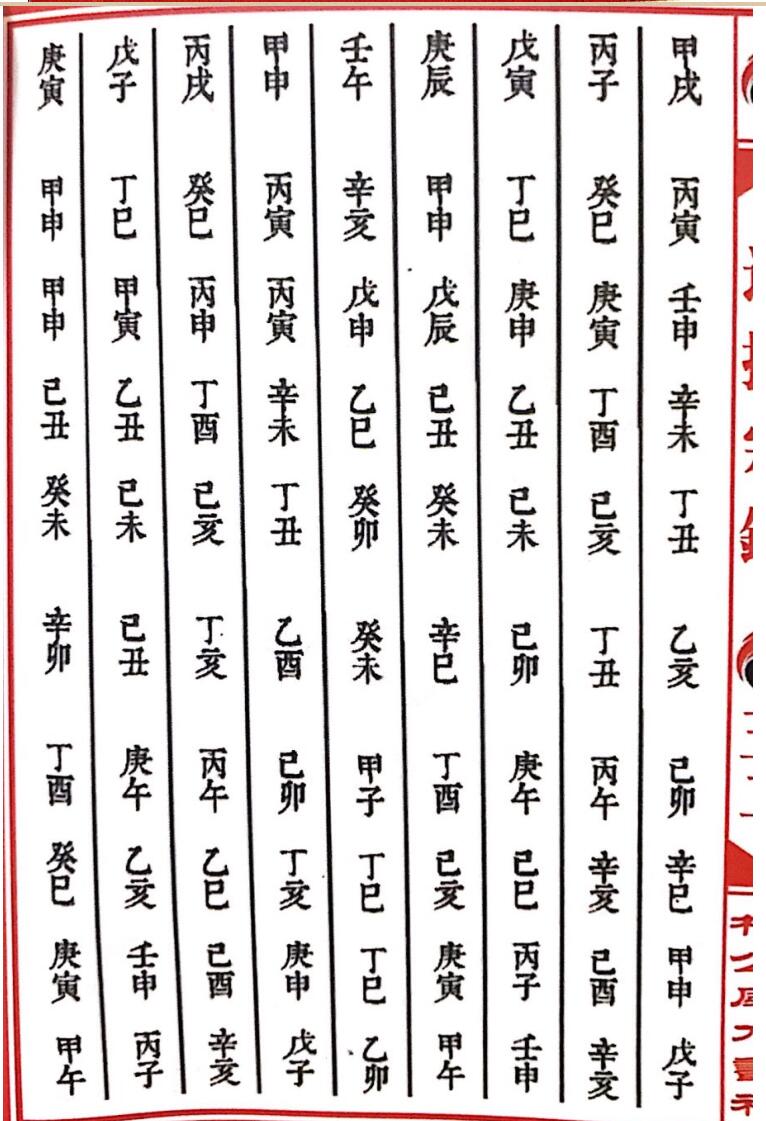 甲戌 丙寅 壬申 辛未 丁丑 乙亥 己卯 辛巳 甲申 戊子
丙子 癸巳 庚寅 丁酉 己亥 丁丑 丙午 辛亥 己酉 辛亥
戊寅 丁巳 庚申 乙丑 己未 己卯 庚午 己巳 丙子 壬申
庚辰 甲申 戊辰 己丑 癸未 辛巳 丁酉 己亥 庚寅 甲午
壬午 辛亥 戊申 乙巳 癸卯 癸未 甲子 丁巳 丁巳 乙卯
甲申 丙寅 丙寅 辛未 丁丑 乙酉 己卯 丁亥 庚申 戊子
丙戌 癸巳 丙申 丁酉 己亥 丁亥 丙午 乙巳 己酉 辛亥
戊子 丁巳 甲寅 乙丑 己未 己丑 庚午 乙亥 壬申 丙子
庚寅 甲申 甲申 己丑 癸未 辛卯 丁酉 癸巳 庚寅 甲午